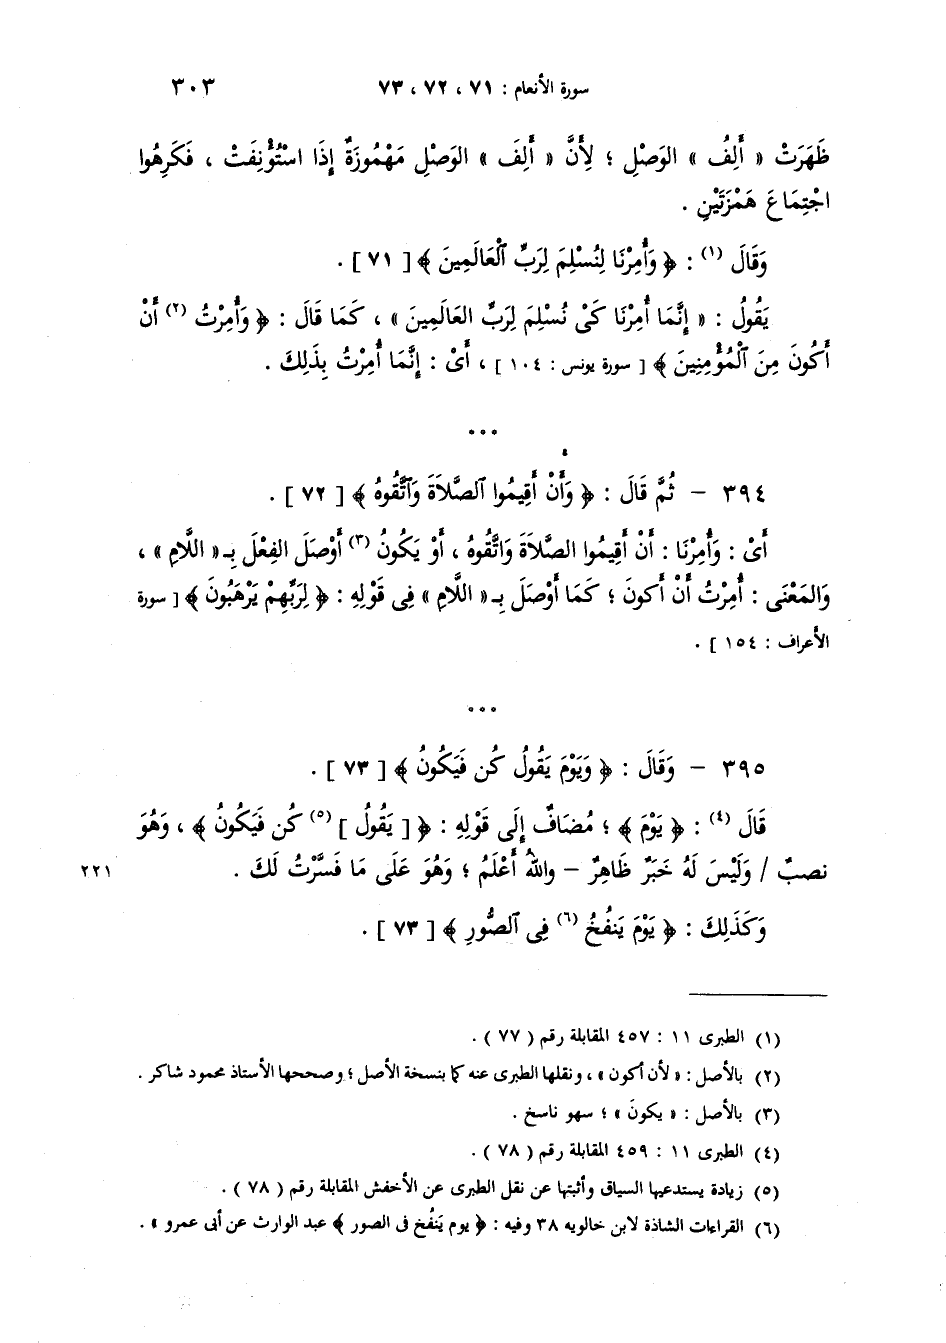 سورة الأنعام : ٧١ ، ٧٢ ، ٧٣ ٣٠٣
ظَهَرَتْ « أَلِفُ » الوَصْلِ ؛ لِأَنَّ « أَلِفَ » الوَصْلِ مَهْمُوزَةٌ إِذَا اسْتُؤْنِفَتْ ، فَكَرِهُوا
اجْتِمَاعَ هَمْزَتَيْنِ .
وَقَالَ (١) : ﴿ وَأُمِرْنَا لِنُسْلِمَ لِرَبِّ ٱلْعَالَمِينَ ﴾ [ ٧١ ] .
يَقُولُ : « إِنَّمَا أُمِرْنَا كَىْ نُسْلِمَ لِرَبِّ العَالَمِينَ » ، كَمَا قَالَ : ﴿ وَأُمِرْتُ (٢) أَنْ
أَكُونَ مِنَ ٱلْمُؤْمِنِينَ ﴾ [ سورة يونس : ١٠٤ ] ، أَىْ : إِنَّمَا أُمِرْتُ بِذَلِكَ .
• • •
٣٩٤ – ثُمَّ قَالَ : ﴿ وَأَنْ أَقِيمُوا ٱلصَّلَاةَ وَٱتَّقُوهُ ﴾ [ ٧٢ ] .
أَىْ : وَأُمِرْنَا : أَنْ أَقِيمُوا الصَّلَاةَ وَاتَّقُوهُ ، أَوْ يَكُونُ (٣) أَوْصَلَ الفِعْلَ بِـ « اللَّامِ » ،
وَالمَعْنَى : أُمِرْتُ أَنْ أَكونَ ؛ كَمَا أَوْصَلَ بِـ « اللَّامِ » فِى قَوْلِهِ : ﴿ لِرَبِّهِمْ يَرْهَبُونَ ﴾ [ سورة
الأعراف : ١٥٤ ] .
• • •
٣٩٥ – وَقَالَ : ﴿ وَيَوْمَ يَقُولُ كُن فَيَكُونُ ﴾ [ ٧٣ ] .
قَالَ (٤) : ﴿ يَوْمَ ﴾ ؛ مُضَافٌ إِلَى قَوْلِهِ : ﴿ [ يَقُولُ ] (٥) كُن فَيَكُونُ ﴾ ، وَهُوَ
نصبٌ / وَلَيْسَ لَهُ خَبَرٌ ظَاهِرٌ – واللهُ أَعْلَمُ ؛ وَهُوَ عَلَى مَا فَسَّرْتُ لَكَ . ٢٢١
وَكَذَلِكَ : ﴿ يَوْمَ يَنفُخُ (٦) فِى ٱلصُّورِ ﴾ [ ٧٣ ] .
(١) الطبرى ١١ : ٤٥٧ المقابلة رقم ( ٧٧ ) .
(٢) بالأصل : « لأن أكون » ، ونقلها الطبرى عنه كما بنسخة الأصل ؛ وصححها الأستاذ محمود شاكر .
(٣) بالأصل : « يكونَ » ؛ سهو ناسخ .
(٤) الطبرى ١١ : ٤٥٩ المقابلة رقم ( ٧٨ ) .
(٥) زيادة يستدعيها السياق وأثبتها عن نقل الطبرى عن الأخفش المقابلة رقم ( ٧٨ ) .
(٦) القراءات الشاذة لابن خالويه ٣٨ وفيه : ﴿ يوم يَنفُخ فى الصور ﴾ عبد الوارث عن أبى عمرو » .